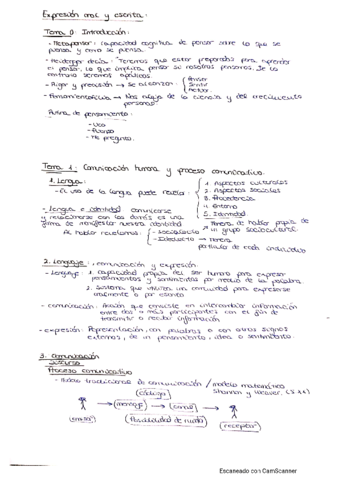 Expresión oral y escrita:
Tema 0: Introducción:
- Metapensar: capacidad cognitiva de pensar sobre lo que se piensa y como se piensa.
- Heidegger decía: Tenemos que estar preparados para aprender
el pensar, lo que implica pensar si nosotros pensamos. De lo
contrario seremos apáticos
- Rigor y precisión → se alcanzan:
Pensar
Sentir
Actuar.
- Pensamiento filia → Nos aleja de la ciencia y del crecimiento
personal
Rutina de pensamiento:
- Veo
- Pienso
- Me pregunto.
Tema 1: Comunicación humana y proceso comunicativo.
1. Lengua:
- El uso de la lengua puede revelar:
1. Aspectos culturales
2. Aspectos sociales
3. Procedencia
4. Entorno
5. Identidad.
- Lengua e identidad: comunicarse
y relacionarse con los demás es una
forma de manifestar nuestra identidad
Al hablar revelamos:
- Sociolecto → Manera de hablar propia de
un grupo sociocultural.
- Idiolecto → Manera
particular de cada individuo
2. Lenguaje, comunicación y expresión.
- Lenguaje: 1. capacidad propia del ser humano para expresar
pensamientos y sentimientos por medio de la palabra.
2. Sistema que utiliza una comunidad para expresarse
oralmente o por escrito
- comunicación: Acción que consiste en intercambiar información
entre dos o más participantes con el fin de
transmitir o recibir información
- expresión: Representación, con palabras o con otros signos
externos, de un pensamiento, idea o sentimiento.
3. Comunicación
Proceso comunicativo
- Modelo tradicional de comunicación / modelo matemático
Shannon y Weaver,
código
mensaje
canal
emisor
(Posibilidad de ruido)
receptor
Escaneado con CamScanner